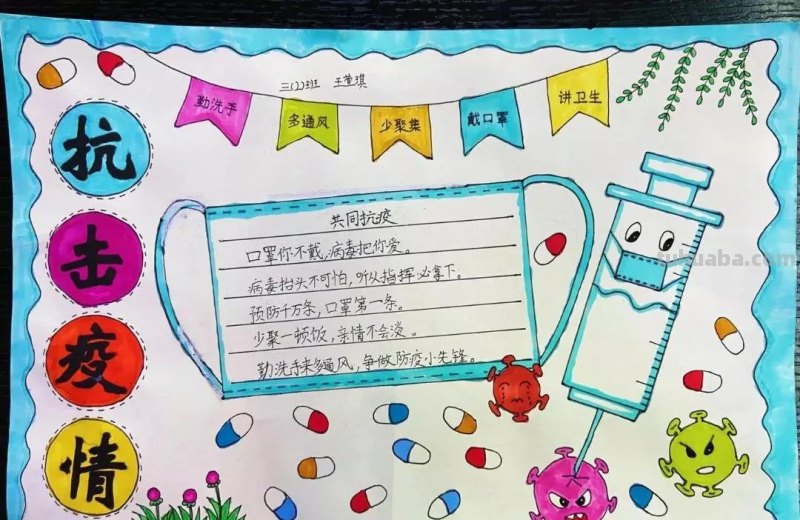 三(2)班 王莹琪
勤洗手
多通风
少聚集
戴口罩
讲卫生
抗
击
疫
情
共同抗疫
口罩你不戴,病毒把你爱。
病毒抬头不可怕,听从指挥必拿下。
预防千万条,口罩第一条。
少聚一顿饭,亲情不会淡。
勤洗手来多通风,争做防疫小先锋。
tukuaba.com